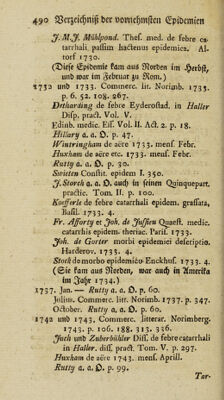 490 Verzeichniß der vornehmsten Epidemien
J. M. J. Mühlpond. Thes. med. de febre ca-
tarrhali passim hactenus epidemica. Al-
torf 1730.
(Diese Epidemie kam aus Norden im Herbst,
und war im Februar zu Rom.)
1732 und 1733. Commerc. lit. Norimb. 1733.
p. 6. 52. 108. 267.
Detharding de febre Eyderostad. in Haller
Disp. pract. Vol. V.
Edinb. medic. Ess. Vol. II. Act. 2. p. 18.
Hillary a. a. O. p. 47.
Wintringham de aëre 1733. mens. Febr.
Huxham de aëre etc. 1733. mens. Febr.
Rutty a. a. O. p. 30.
Swieten Constit. epidem I. 350.
J. Storch a. a. O. auch in seinen Quinquepart.
practic. Tom. II. p. 100.
Koefferle de febre catarrhali epidem. grassata,
Basil. 1733. 4.
Fr. Afforty et Joh. de Jussieu Quaest. medic.
catarrhis epidem. theriac. Paris. 1733.
Joh. de Gorter morbi epidemici descriptio.
Harderov. 1733. 4.
Stock de morbo epidemico Enckhus. 1733. 4.
(Sie kam aus Norden, war auch in Amerika
im Jahr 1734.)
1737. Jan. — Rutty a. a. O. p. 60.
Julius. Commerc. litt. Norimb. 1737. p. 347.
October. Rutty a. a. O. p. 60.
1742 und 1743. Commerc. litterar. Norimberg.
1743. p. 106. 188. 313. 336.
Juch und Zuberbühler Diss. de febre catarrhali
in Haller. diss. pract Tom. V. p. 297.
Huxham de aëre 1743. mens. Aprill.
Rutty a. a. O. p. 99.
Tar-